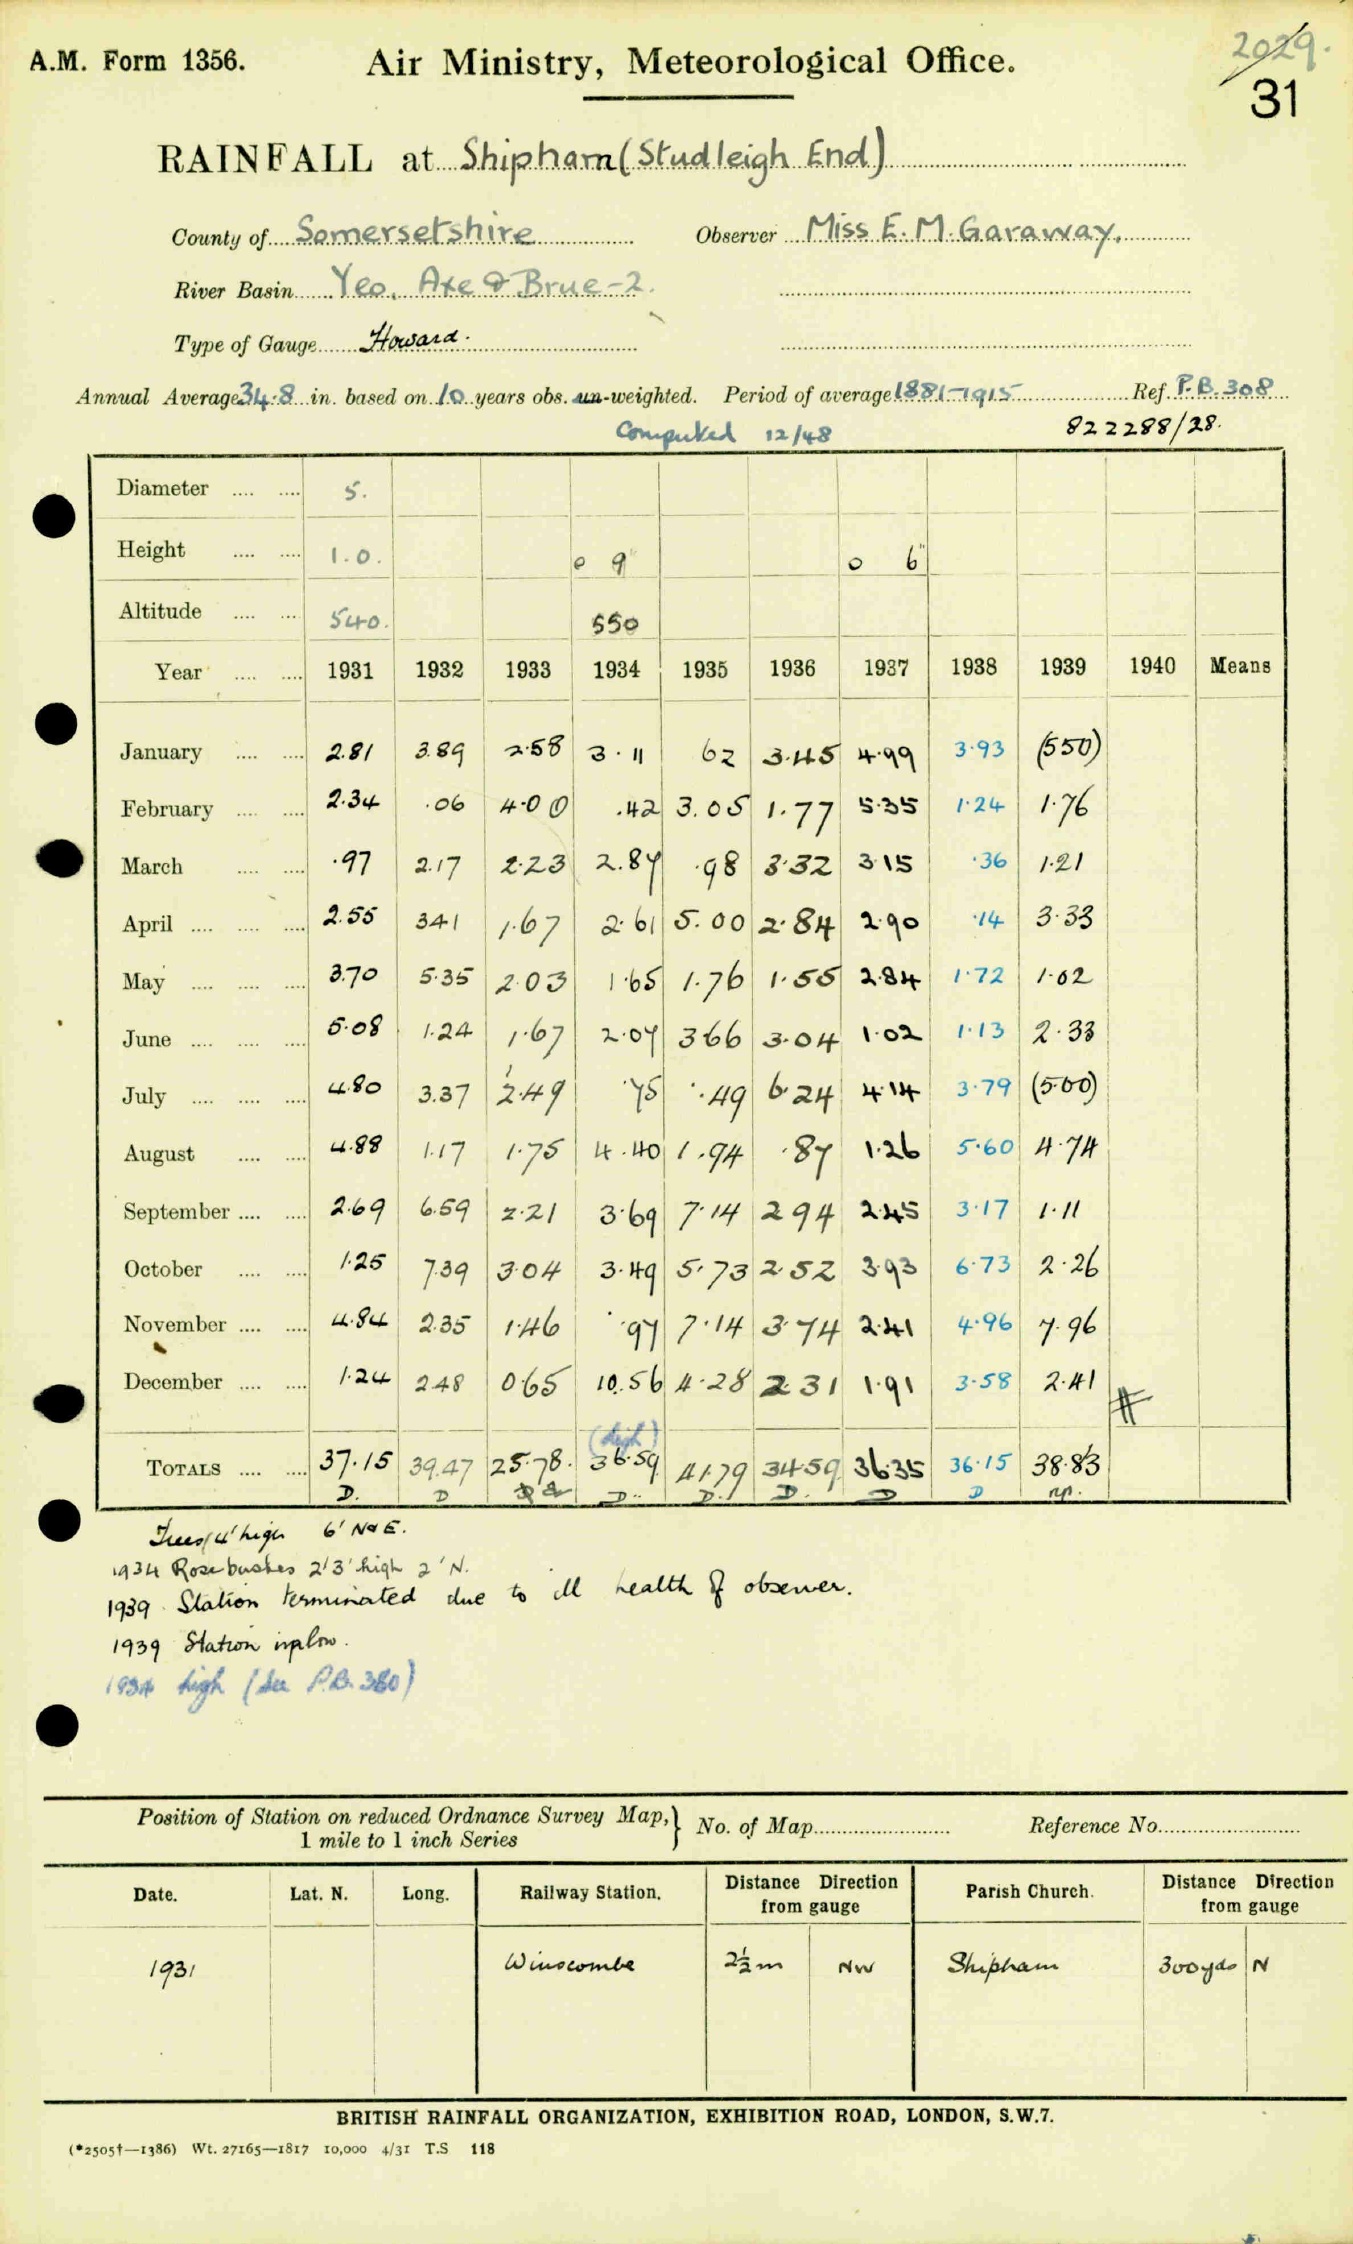 2029.
A.M. Form 1356. Air Ministry, Meteorological Office.
31
RAINFALL at Shipham (Studleigh End)
County of Somersetshire Observer Miss E. M. Garaway.
River Basin Yeo, Axe & Brue-2.
Type of Gauge Howard.
Annual Average 34.8 in. based on 10 years obs. un-weighted. Period of average 1881-1915 Ref. P.B. 308
Computed 12/48 822288/28.
Diameter .... .... 5.
Height .... .... 1.0. 0 9" 0 6"
Altitude .... .... 540. 550
Year .... .... 1931 1932 1933 1934 1935 1936 1937 1938 1939 1940 Means
January .... .... 2.81 3.89 2.58 3.11 62 3.45 4.99 3.93 (550)
February .... .... 2.34 .06 4.00 .42 3.05 1.77 5.35 1.24 1.76
March .... .... .97 2.17 2.23 2.87 .98 3.32 3.15 .36 1.21
April .... .... .... 2.55 341 1.67 2.61 5.00 2.84 2.90 .14 3.33
May .... .... .... 3.70 5.35 2.03 1.65 1.76 1.55 2.84 1.72 1.02
June .... .... .... 5.08 1.24 1.67 2.07 366 3.04 1.02 1.13 2.33
July .... .... .... 4.80 3.37 2.49 .75 .49 6.24 4.14 3.79 (500)
August .... .... 4.88 1.17 1.75 4.40 1.94 .87 1.26 5.60 4.74
September .... .... 2.69 6.59 2.21 3.69 7.14 294 2.45 3.17 1.11
October .... .... 1.25 7.39 3.04 3.49 5.73 2.52 3.93 6.73 2.26
November .... .... 4.84 2.35 1.46 .97 7.14 3.74 2.41 4.96 7.96
December .... .... 1.24 2.48 0.65 10.56 4.28 2.31 1.91 3.58 2.41
(high)
TOTALS .... .... 37.15 39.47 25.78. 36.59 41.79 34.59 36.35 36.15 38.83
D. D D. D. D. D D np.
Trees 4' high 6' N & E.
1934 Rose bushes 2'3' high 2' N.
1939 Station terminated due to ill health of observer.
1939 Station inplow.
1934 high (See P.B. 380)
Position of Station on reduced Ordnance Survey Map, } No. of Map Reference No.
1 mile to 1 inch Series
Date. Lat. N. Long. Railway Station. Distance Direction from gauge Parish Church. Distance Direction from gauge
1931 Winscombe 2½m NW Shipham 300yds N
BRITISH RAINFALL ORGANIZATION, EXHIBITION ROAD, LONDON, S.W.7.
(*2505†—1386) Wt. 27165—1817 10,000 4/31 T.S 118